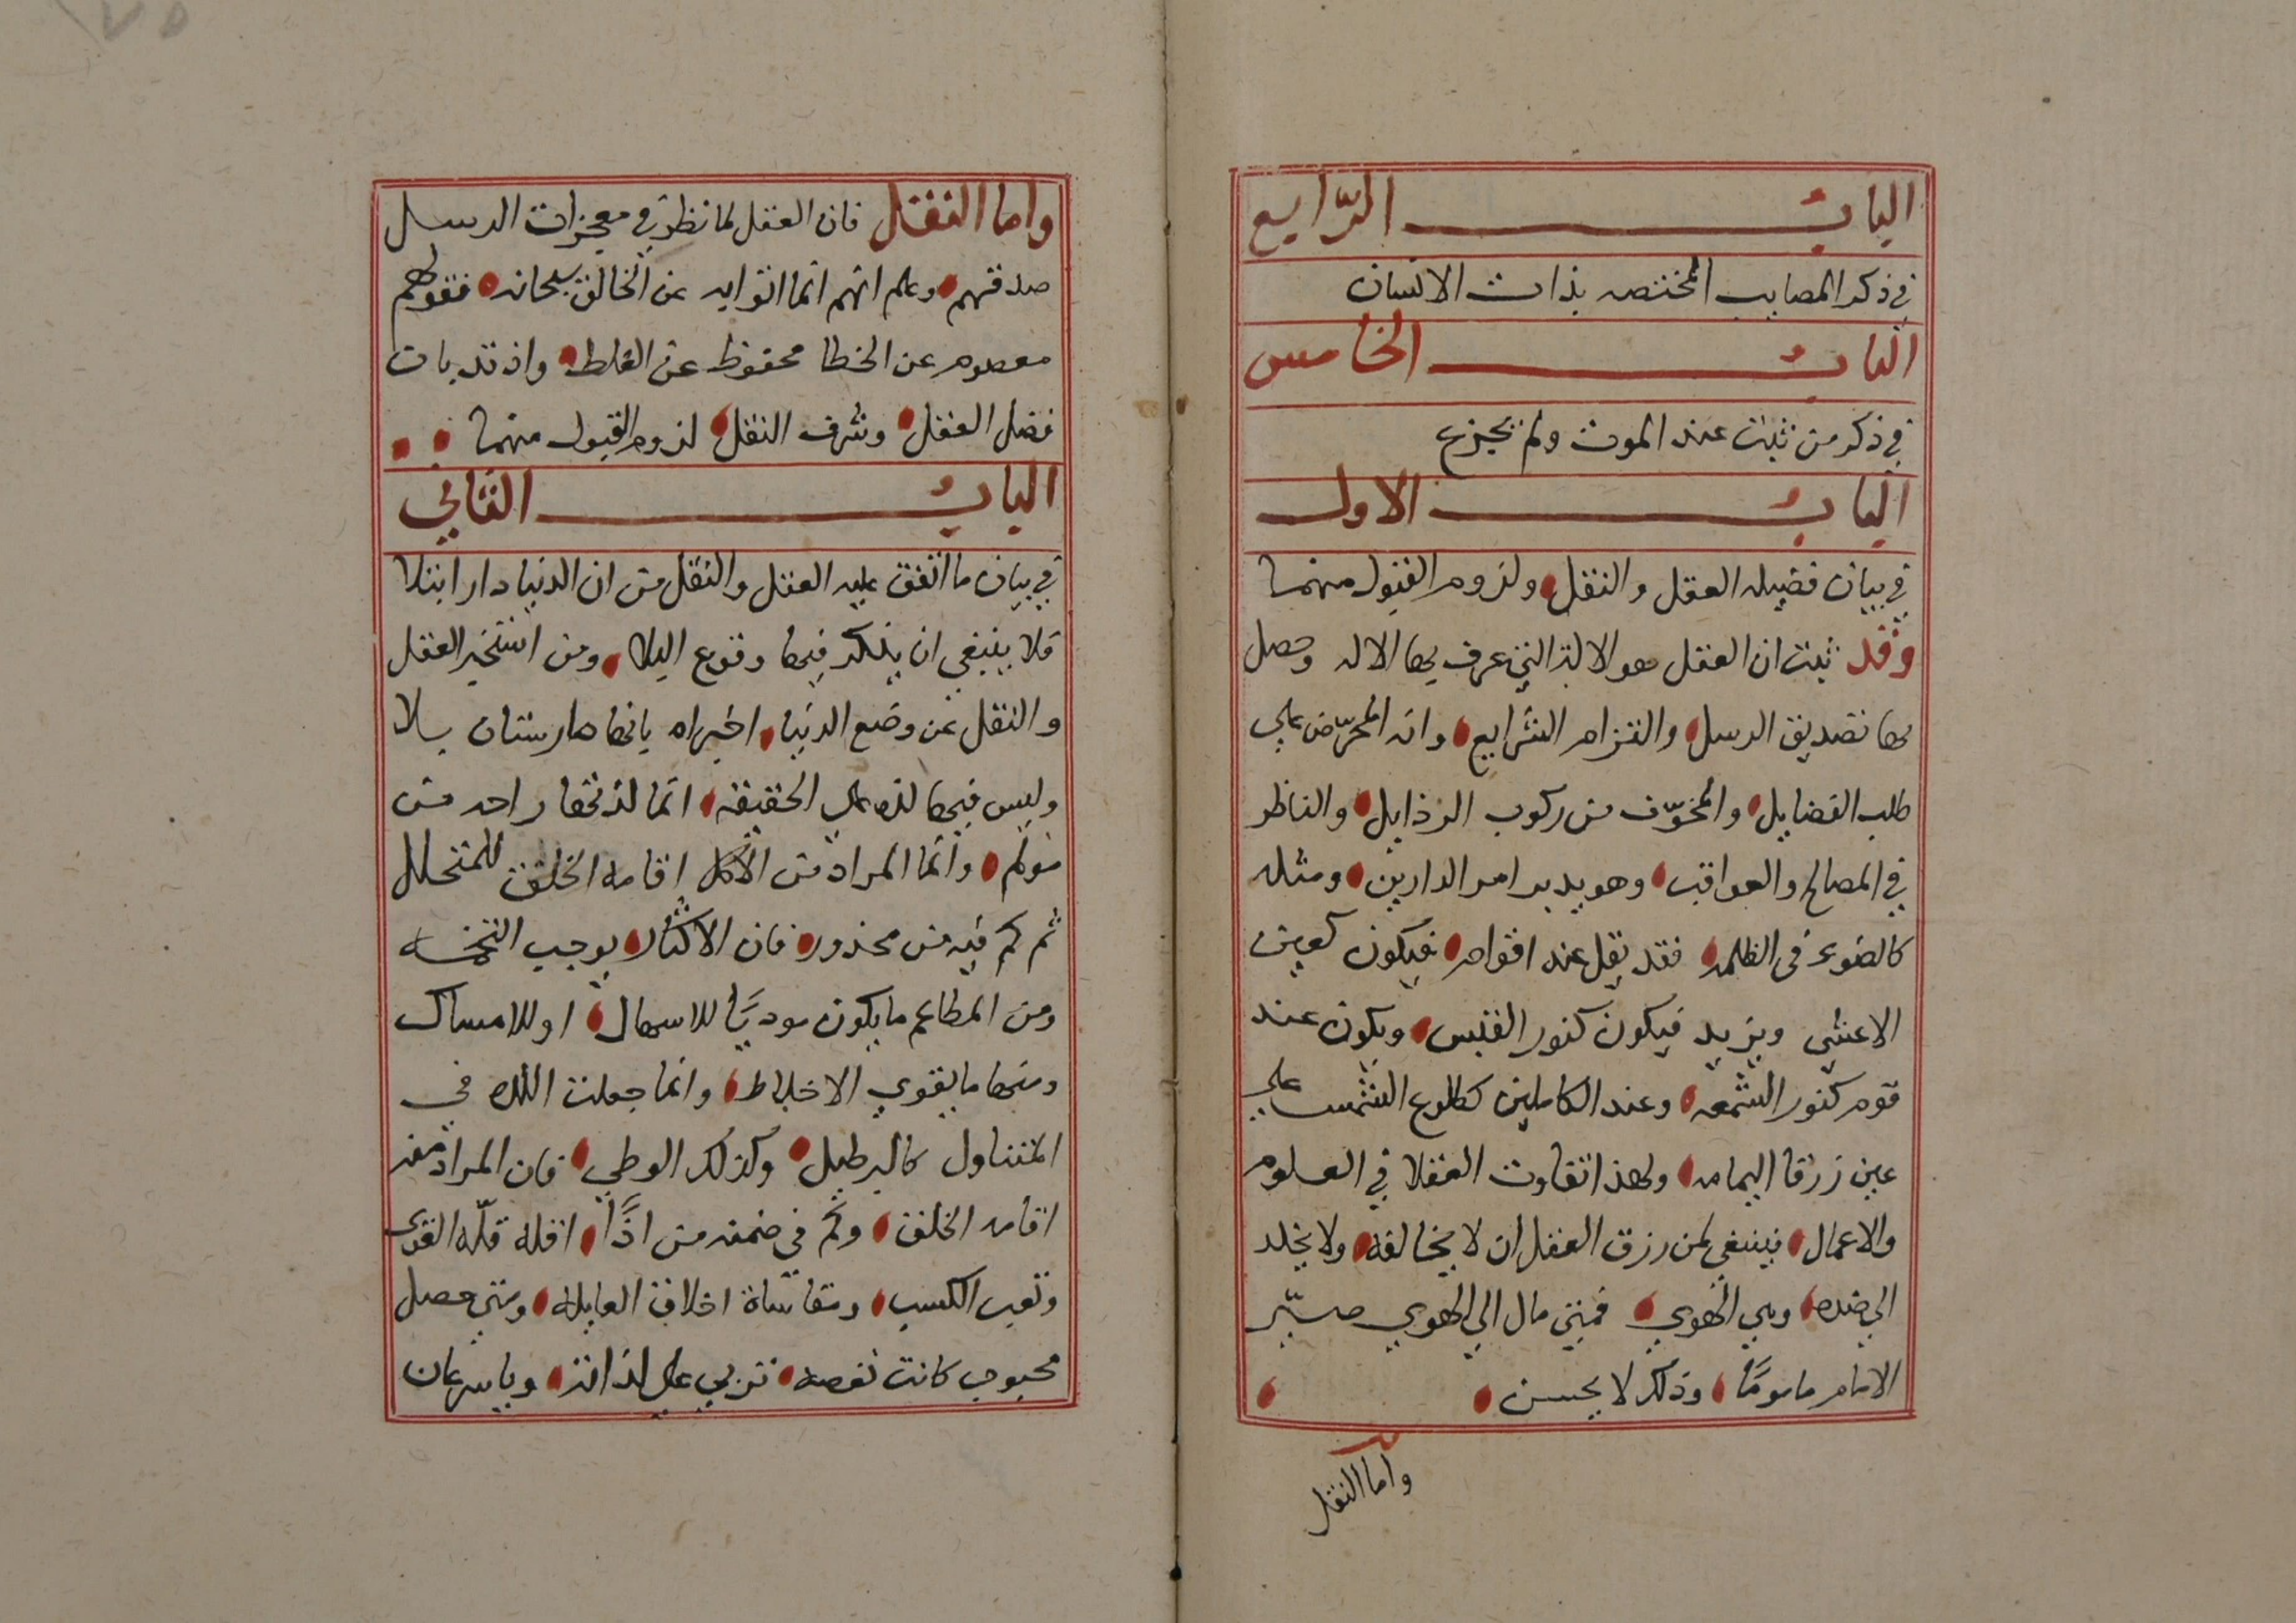 الباب الرّابع
في ذكر المصايب المختصه بذات الانسان
الباب الخامس
في ذكر من ثبت عند الموت ولم يجزع
الباب الاول
في بيان فضيله العقل والنقل ولزوم القبول منهما
وقد ثبت ان العقل هو الالة التي عرف بها الاله وحصل
بها تصديق الرسل والتزام الشرايع وانه المحرّض علي
طلب الفضايل والمخوّف من ركوب الرذايل والناظر
في المصالح والعواقب وهو يدبر امر الدارين ومثله
كالضوء في الظلمه فقد يقل عند اقوام فيكون كعين
الاعشي ويزيد فيكون كنور القبس ويكون عند
قوم كنور الشمعه وعند الكاملين كطلوع الشمس علي
عين زرقا اليمامه ولهذا تفاوت العقلا في العلوم
والاعمال فينبغي لمن رزق العقل ان لا يخالفه ولا يخلد
الي ضده وهي الهوي فمتي مال الي الهوي صيّر
الامام ماموما وذلك لا يحسن
واما النقل
واما النقل فان العقل لما نظر في معجزات الرسل
صدقهم وعلم انهم انما اتوا به عن الخالق سبحانه فقولهم
معصوم عن الخطا محفوظ عن الغلط واذ قد بان
فضل العقل وشرف النقل لزوم القبول منهما
الباب الثاني
في بيان ما اتفق عليه العقل والنقل من ان الدنيا دار ابتلا
فلا ينبغي ان ينكر فيها وقوع البلا ومن استخبر العقل
والنقل عن وضع الدنيا اخبراه بانها مارستان بلا
وليس فيها لذه علي الحقيقه انما لذتها راحه من
مولم وانما المراد من الاكل اقامه الخلف للمتحلل
ثم كم فيه من محذور فان الاكثار يوجب التخمه
ومن المطاعم ما يكون موديًا للاسهال او للامساك
ومنها ما يقوي الاخلاط وانما جعلت اللذه في
المتناول كالبرطيل وكذلك الوطي فان المراد منه
اقامه الخلف وكم في ضمنه من اذًا اقله قلّه القوى
وتعب الكسب ومقاساة اخلاق العايله ومتي حصل
محبوب كانت نغصه تربي علي لذاته